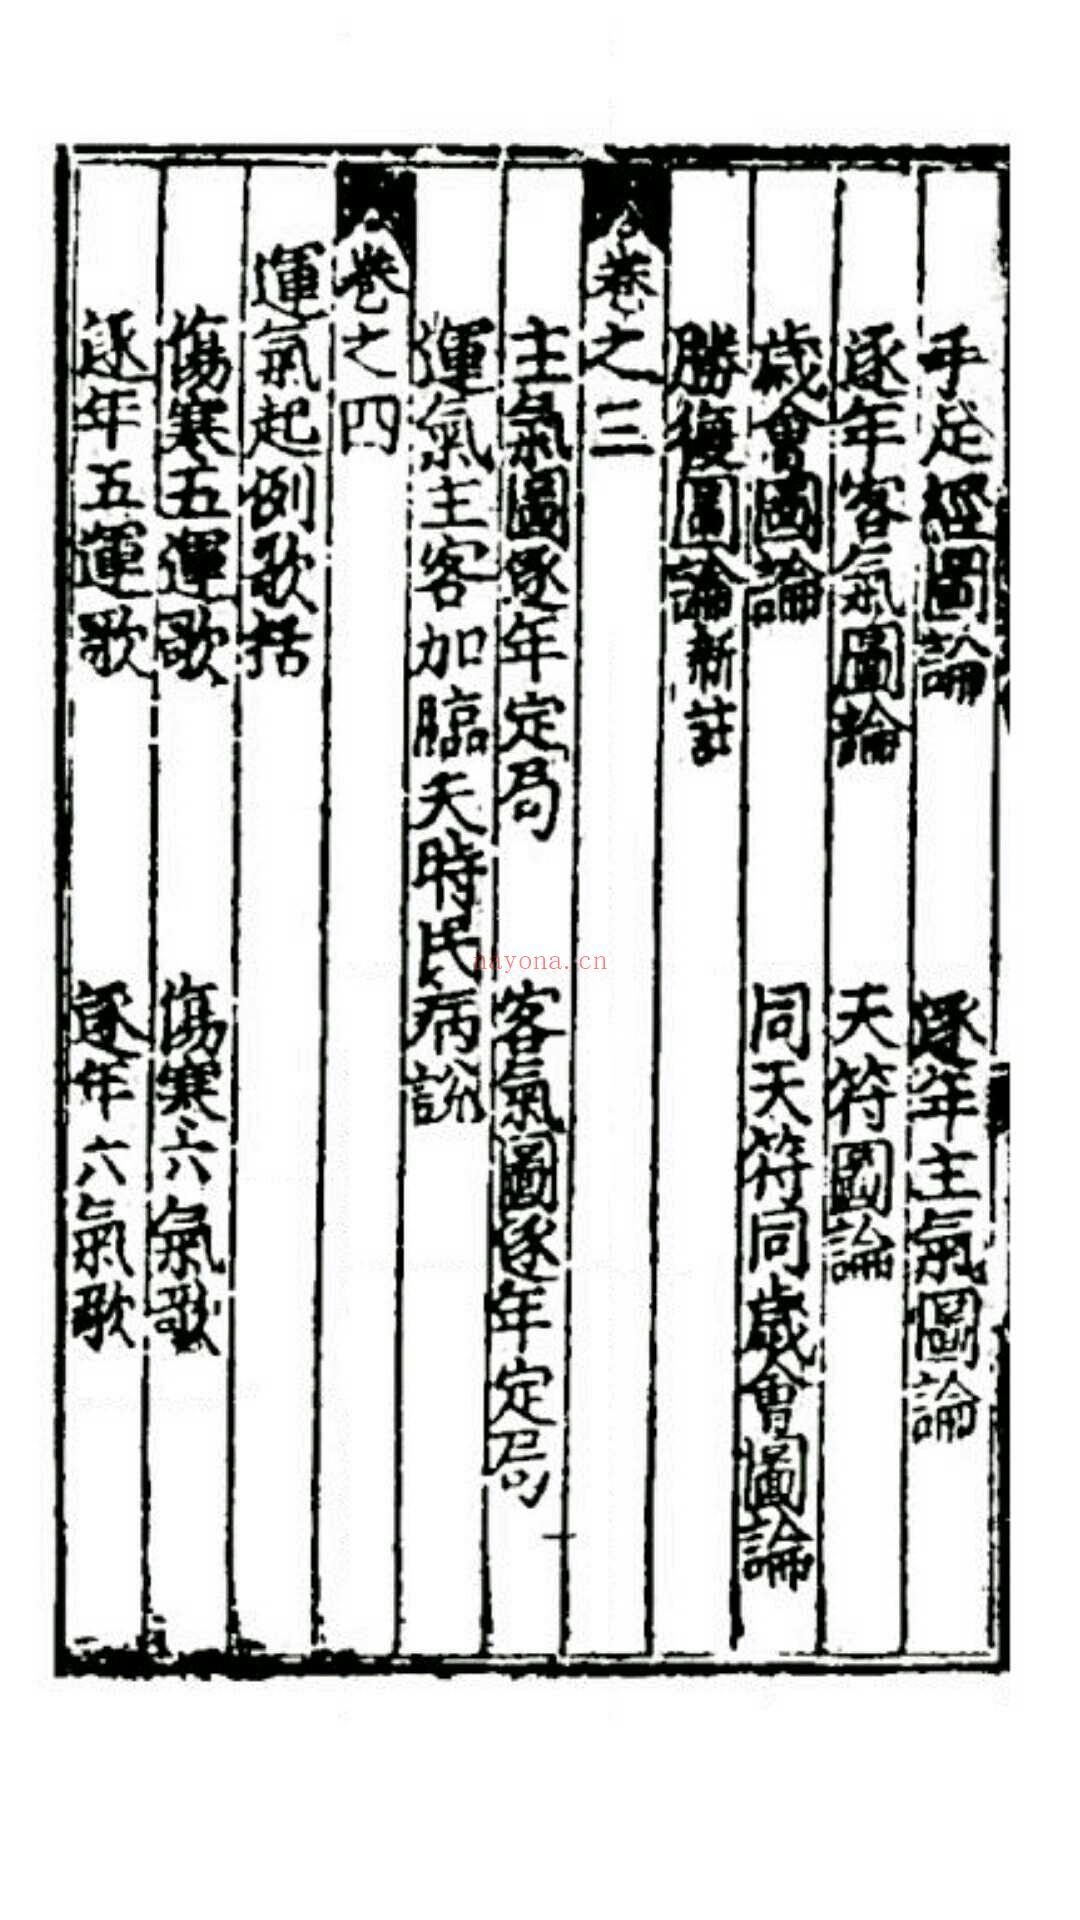 手足經圖論　逐年主氣圖論
逐年客氣圖論　天符圖論
歲會圖論　同天符同歲會圖論
勝復圖論新註
卷之三
主氣圖逐年定局　客氣圖逐年定局
運氣主客加臨天時民病說
卷之四
運氣起例歌括
傷寒五運歌　傷寒六氣歌
逐年五運歌　逐年六氣歌
nayona.cn